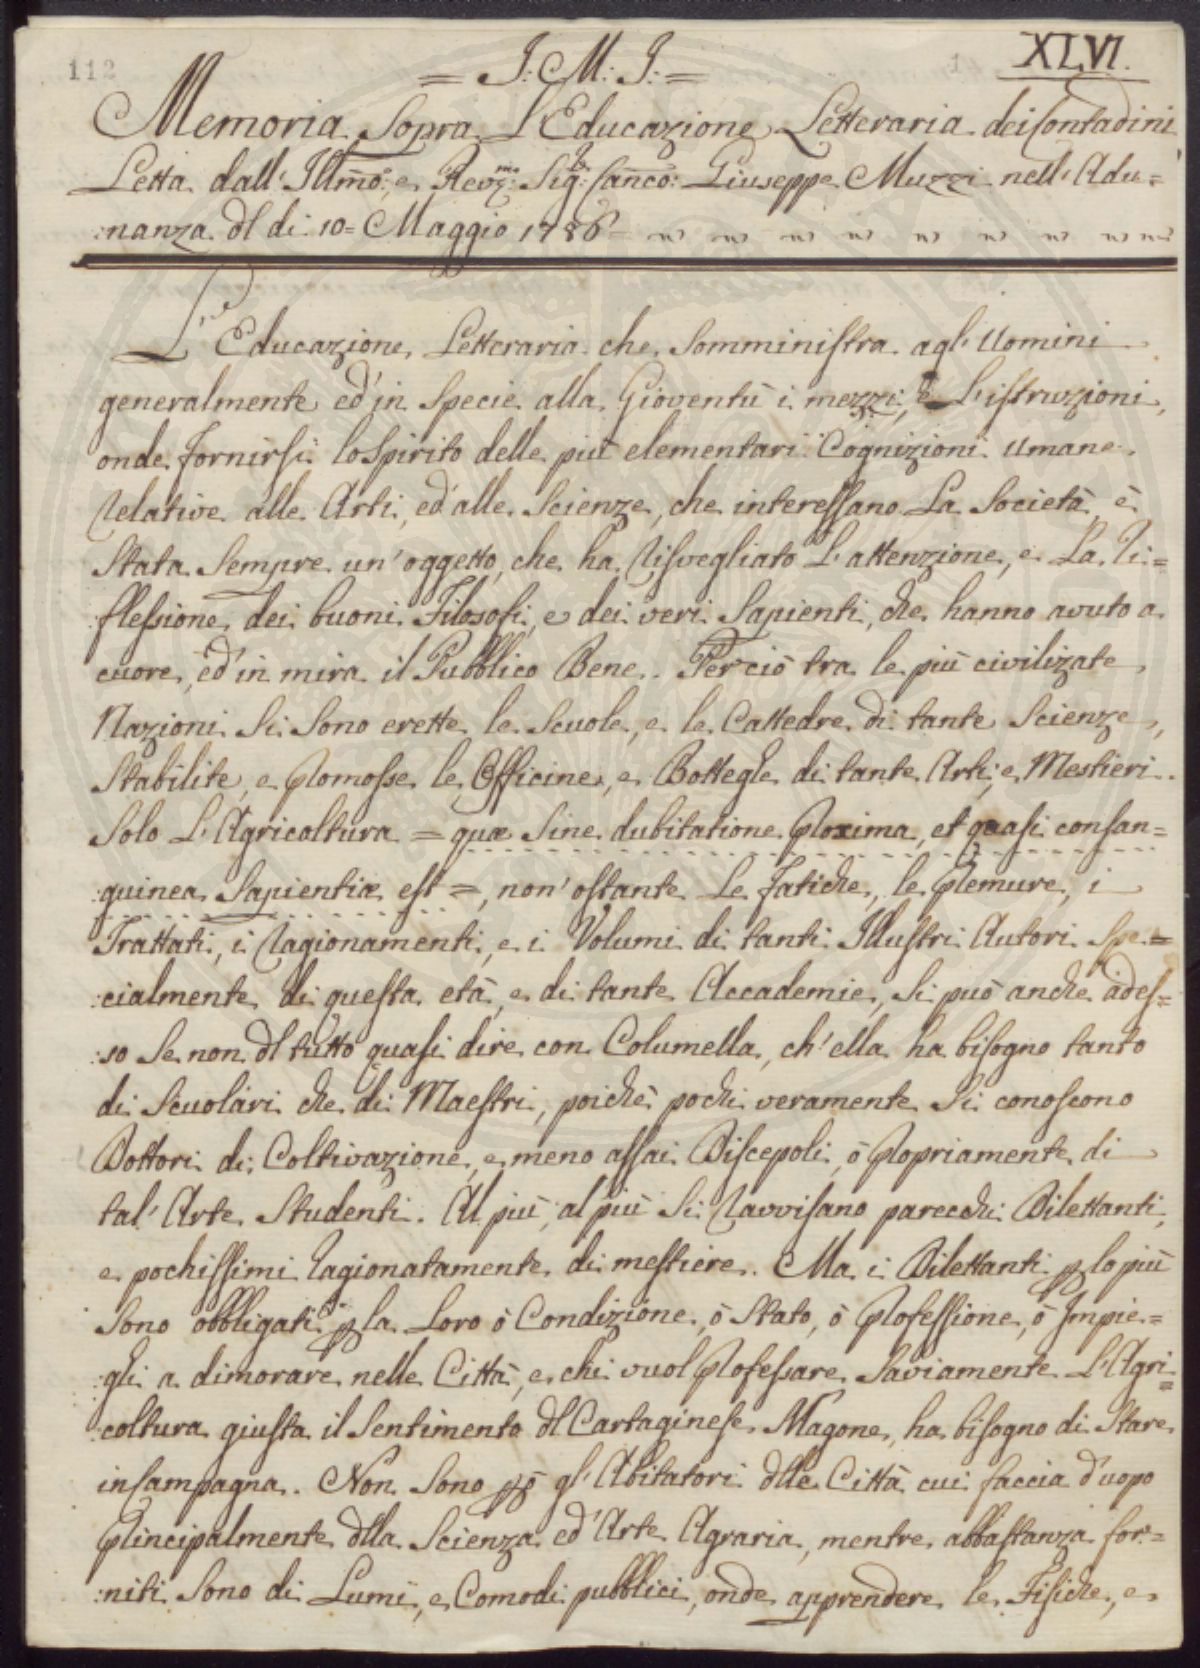 112
1
XLVI.
= J: M: J: =
Memoria Sopra L'Educazione Letteraria dei Contadini
Letta dall' Illmo: e Revmo: Sigr: Canco: Giuseppe Muzzi nell' Adu=
:nanza dl di: 10= Maggio 1786
L'Educazione Letteraria che somministra agl' Uomini
generalmente ed' in specie alla Gioventù i mezzi, e l'istruzioni,
onde fornirsi lo Spirito delle più elementari Cognizioni Umane
relative alle Arti, ed' alle Scienze, che interessano la Società è
stata sempre un' oggetto, che ha risvegliato l'attenzione, e la ri=
flessione dei buoni Filosofi, e dei veri Sapienti, che hanno avuto a
cuore, ed' in mira il Pubblico Bene. Perciò tra le più civilizate
Nazioni si sono erette le Scuole, e le Cattedre di tante Scienze,
stabilite, e promosse le Officine, e Botteghe di tante Arti, e Mestieri.
Solo l'Agricoltura = quæ sine dubitatione proxima, et quasi consan=
:guinea Sapientiæ est =, non' ostante le fatiche, le premure, i
Trattati, i ragionamenti, e i Volumi di tanti Illustri Autori spe=
:cialmente di questa età, e di tante Accademie, si può anche ades=
:so se non dl tutto quasi dire con Columella, ch' ella ha bisogno tanto
di Scuolari che di Maestri, poichè pochi veramente si conoscono
Dottori di Coltivazione, e meno assai Discepoli, ò propriamente di
tal' Arte Studenti. Al più, al più si ravvisano parecchi Dilettanti,
e pochissimi ragionatamente di mestiere. Ma i Dilettanti p lo più
sono obbligati p la loro ò Condizione, ò Stato, ò Professione, ò Impie=
:ghi a dimorare nelle Città, e chi vuol professare saviamente l'Agri=
:coltura giusta il Sentimento dl Cartaginese Magone, ha bisogno di stare
in Campagna. Non sono pò gl' Abitatori dlle Città cui faccia d'uopo
principalmente dlla Scienza ed' Arte Agraria, mentre abbastanza for=
:niti sono di Lumi, e Comodi pubblici, onde apprendere le Fisiche, e